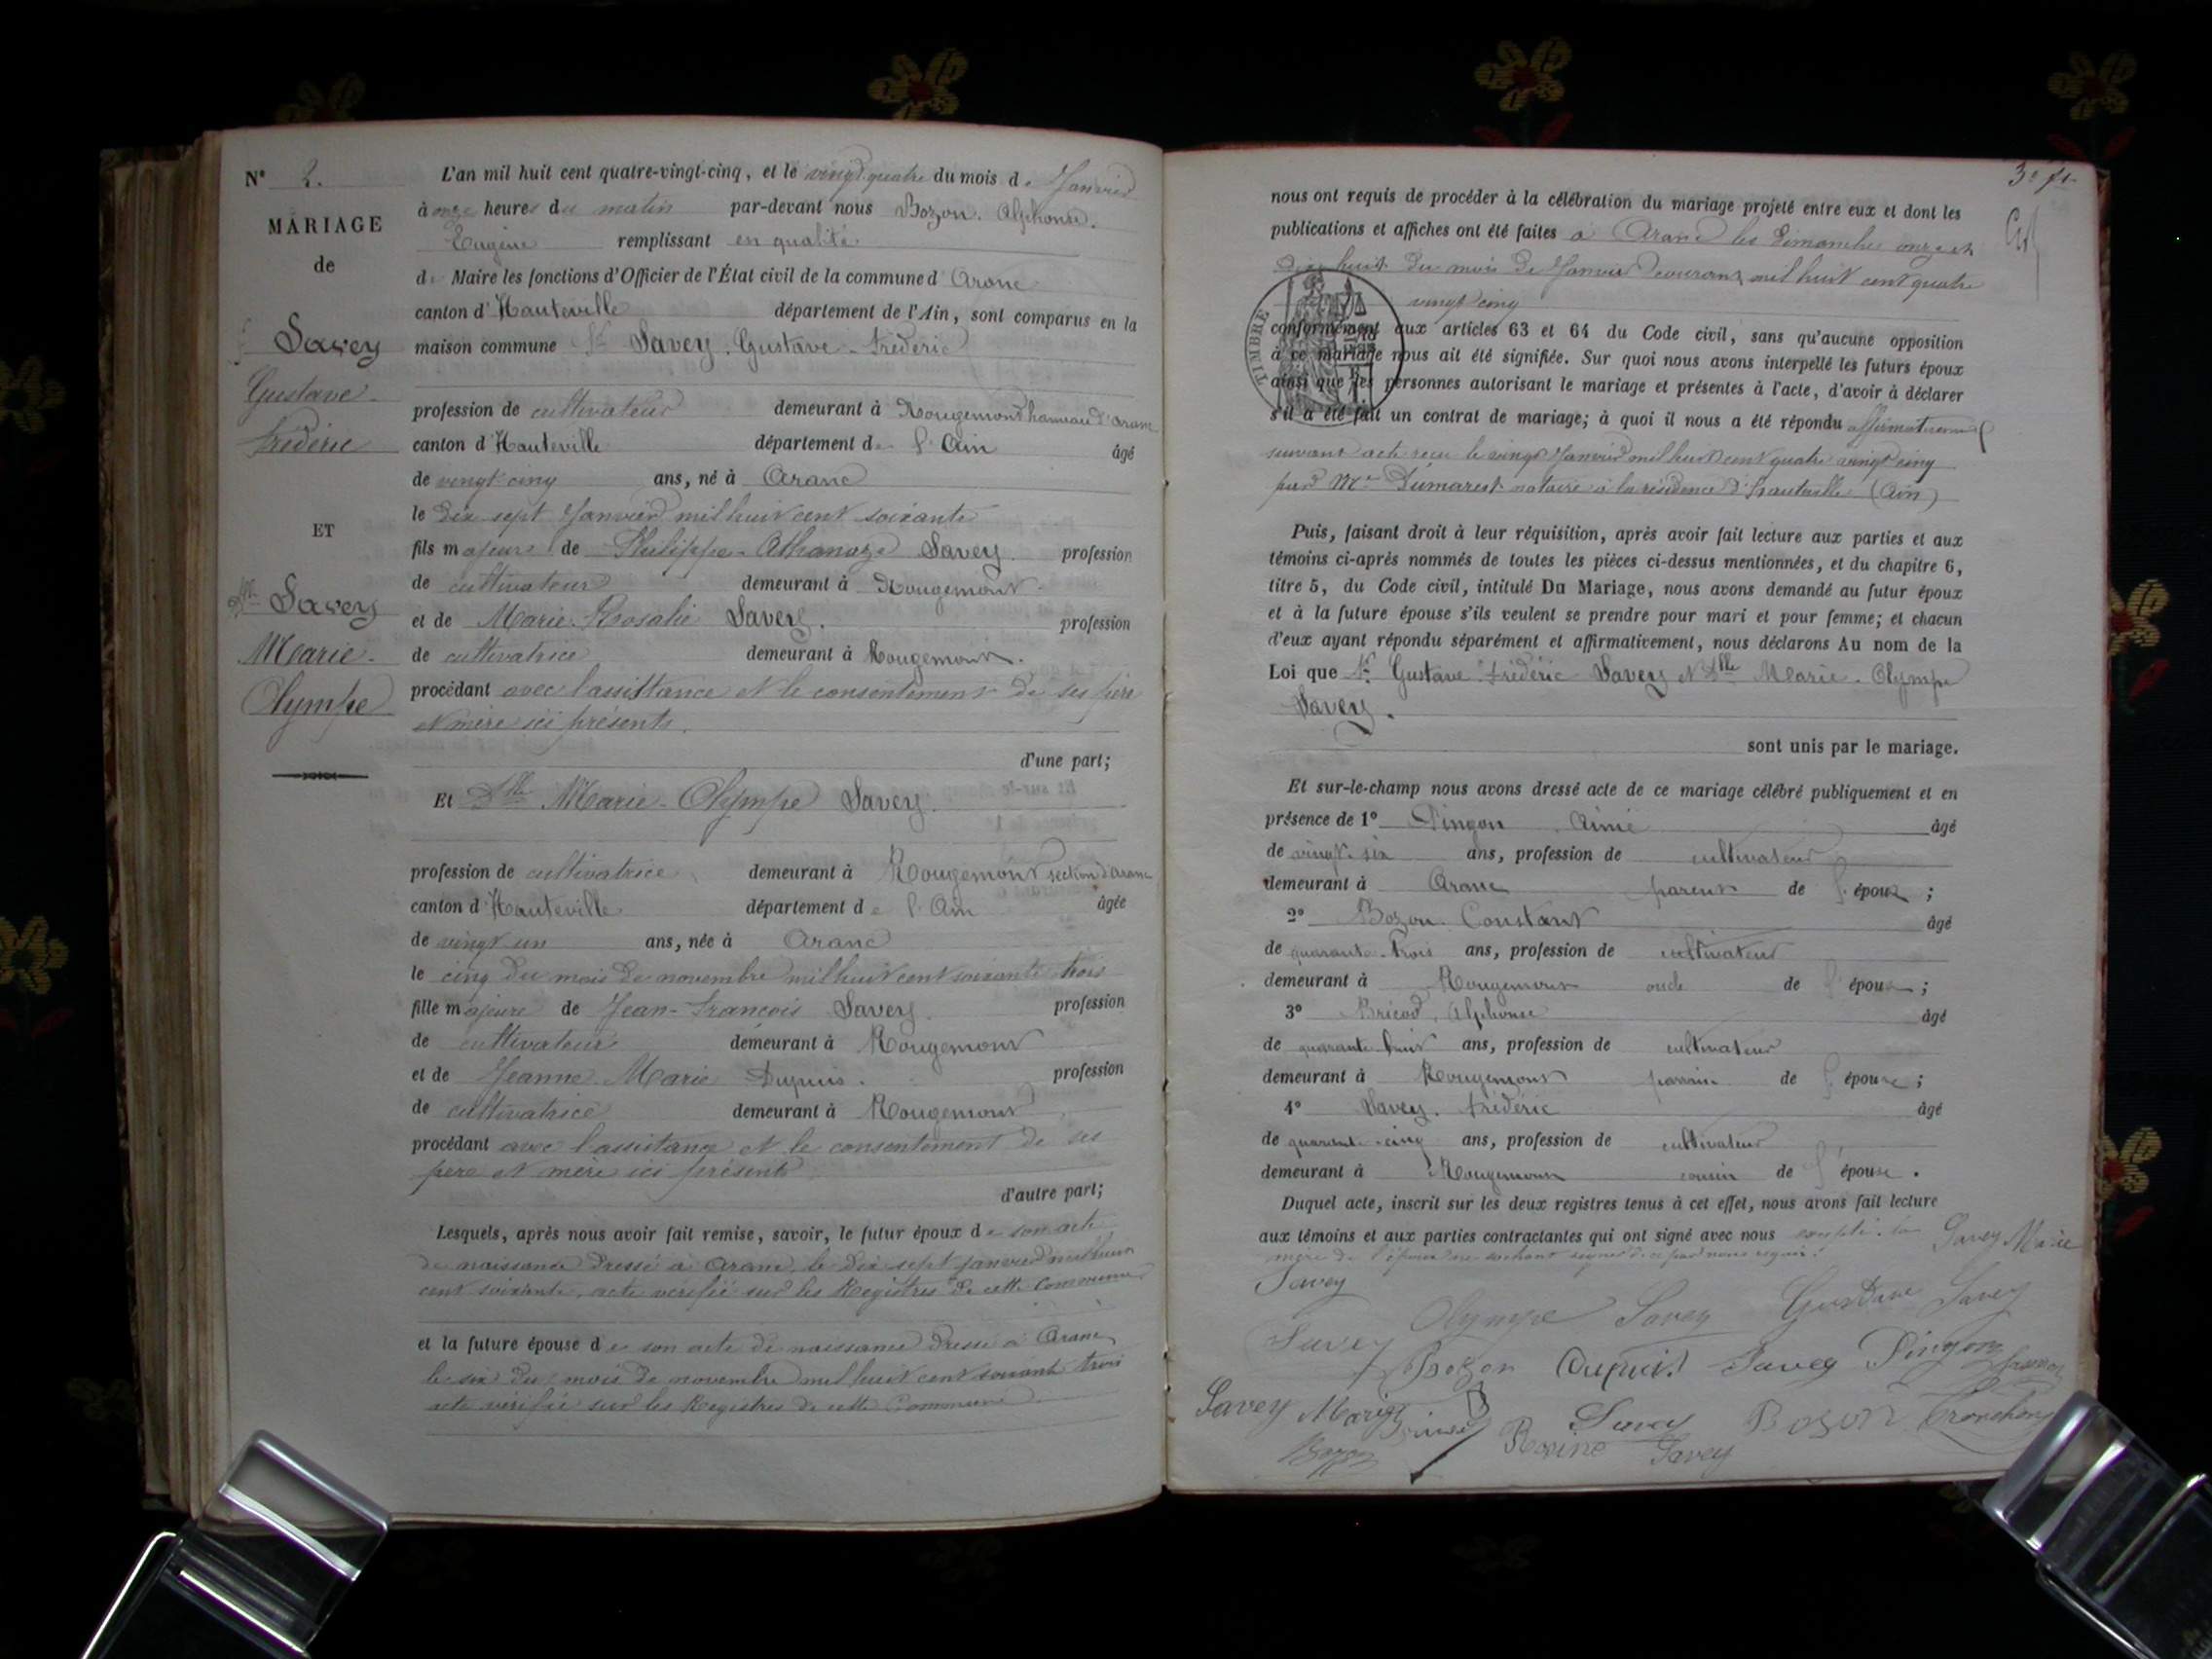 N° 2.
MARIAGE
de
Savey
Gustave
Frédéric
ET
Dlle Savey
Marie
Olympe
L'an mil huit cent quatre-vingt-cinq, et le vingt quatre du mois de Janvier
à onze heures du matin par-devant nous Bozon. Alphonse.
Eugène remplissant en qualité
de Maire les fonctions d'Officier de l'État civil de la commune d'Aranc
canton d'Hauteville département de l'Ain, sont comparus en la
maison commune Sr Savey. Gustave-Frédéric
profession de cultivateur demeurant à Rougemont hameau d'Aranc
canton d'Hauteville département de l'Ain âgé
de vingt cinq ans, né à Aranc
le dix sept Janvier mil huit cent soixante
fils majeur de Philippe-Athanaze Savey. profession
de cultivateur demeurant à Rougemont
et de Marie-Rosalie Savey. profession
de cultivatrice demeurant à Rougemont.
procédant avec l'assistance et le consentement de ses père
et mère ici présents.
d'une part;
Et Dlle Marie-Olympe Savey.
profession de cultivatrice demeurant à Rougemont section d'Aranc
canton d'Hauteville département de l'Ain âgée
de vingt un ans, née à Aranc
le cinq du mois de novembre mil huit cent soixante trois
fille majeure de Jean-François Savey. profession
de cultivateur demeurant à Rougemont
et de Jeanne Marie Dupuis. profession
de cultivatrice demeurant à Rougemont
procédant avec l'assistance et le consentement de ses
père et mère ici présents
d'autre part;
Lesquels, après nous avoir fait remise, savoir, le futur époux de son acte
de naissance dressé à Aranc, le dix sept janvier mil huit
cent soixante, acte vérifié sur les Registres de cette commune
et la future épouse de son acte de naissance dressé à Aranc
le six du mois de novembre mil huit cent soixante trois
acte vérifié sur les Registres de cette Commune.
nous ont requis de procéder à la célébration du mariage projeté entre eux et dont les
publications et affiches ont été faites à Aranc les dimanches onze et
dix huit du mois de Janvier courant mil huit cent quatre
vingt cinq
TIMBRE
conformément aux articles 63 et 64 du Code civil, sans qu'aucune opposition
à ce mariage nous ait été signifiée. Sur quoi nous avons interpellé les futurs époux
ainsi que les personnes autorisant le mariage et présentes à l'acte, d'avoir à déclarer
s'il a été fait un contrat de mariage; à quoi il nous a été répondu affirmativement
suivant acte reçu le vingt Janvier mil huit cent quatre vingt cinq
par Me Dumarest notaire à la résidence d'Hauteville (Ain)
Puis, faisant droit à leur réquisition, après avoir fait lecture aux parties et aux
témoins ci-après nommés de toutes les pièces ci-dessus mentionnées, et du chapitre 6,
titre 5, du Code civil, intitulé Du Mariage, nous avons demandé au futur époux
et à la future épouse s'ils veulent se prendre pour mari et pour femme; et chacun
d'eux ayant répondu séparément et affirmativement, nous déclarons Au nom de la
Loi que Sr Gustave Frédéric Savey et Dlle Marie-Olympe
Savey.
sont unis par le mariage.
Et sur-le-champ nous avons dressé acte de ce mariage célébré publiquement et en
présence de 1° Pingon Aimé âgé
de vingt-six ans, profession de cultivateur
demeurant à Aranc parent de l'époux ;
2° Bozon Constant âgé
de quarante-trois ans, profession de cultivateur
demeurant à Rougemont oncle de l'époux ;
3° Bricod, Alphonse âgé
de quarante huit ans, profession de cultivateur
demeurant à Rougemont parrain de l'épouse ;
4° Savey. Frédéric âgé
de quarante-cinq ans, profession de cultivateur
demeurant à Rougemont cousin de l'épouse .
Duquel acte, inscrit sur les deux registres tenus à cet effet, nous avons fait lecture
aux témoins et aux parties contractantes qui ont signé avec nous excepté la Savey Marie
mère de l'épouse ne sachant signer de ce par nous requis.
Savey
Olympe Savey Gustave Savey
Savey Bozon Dupuis Savey Pingon
Savey Marie Savey Bozon Tronchon
Rosine Savey